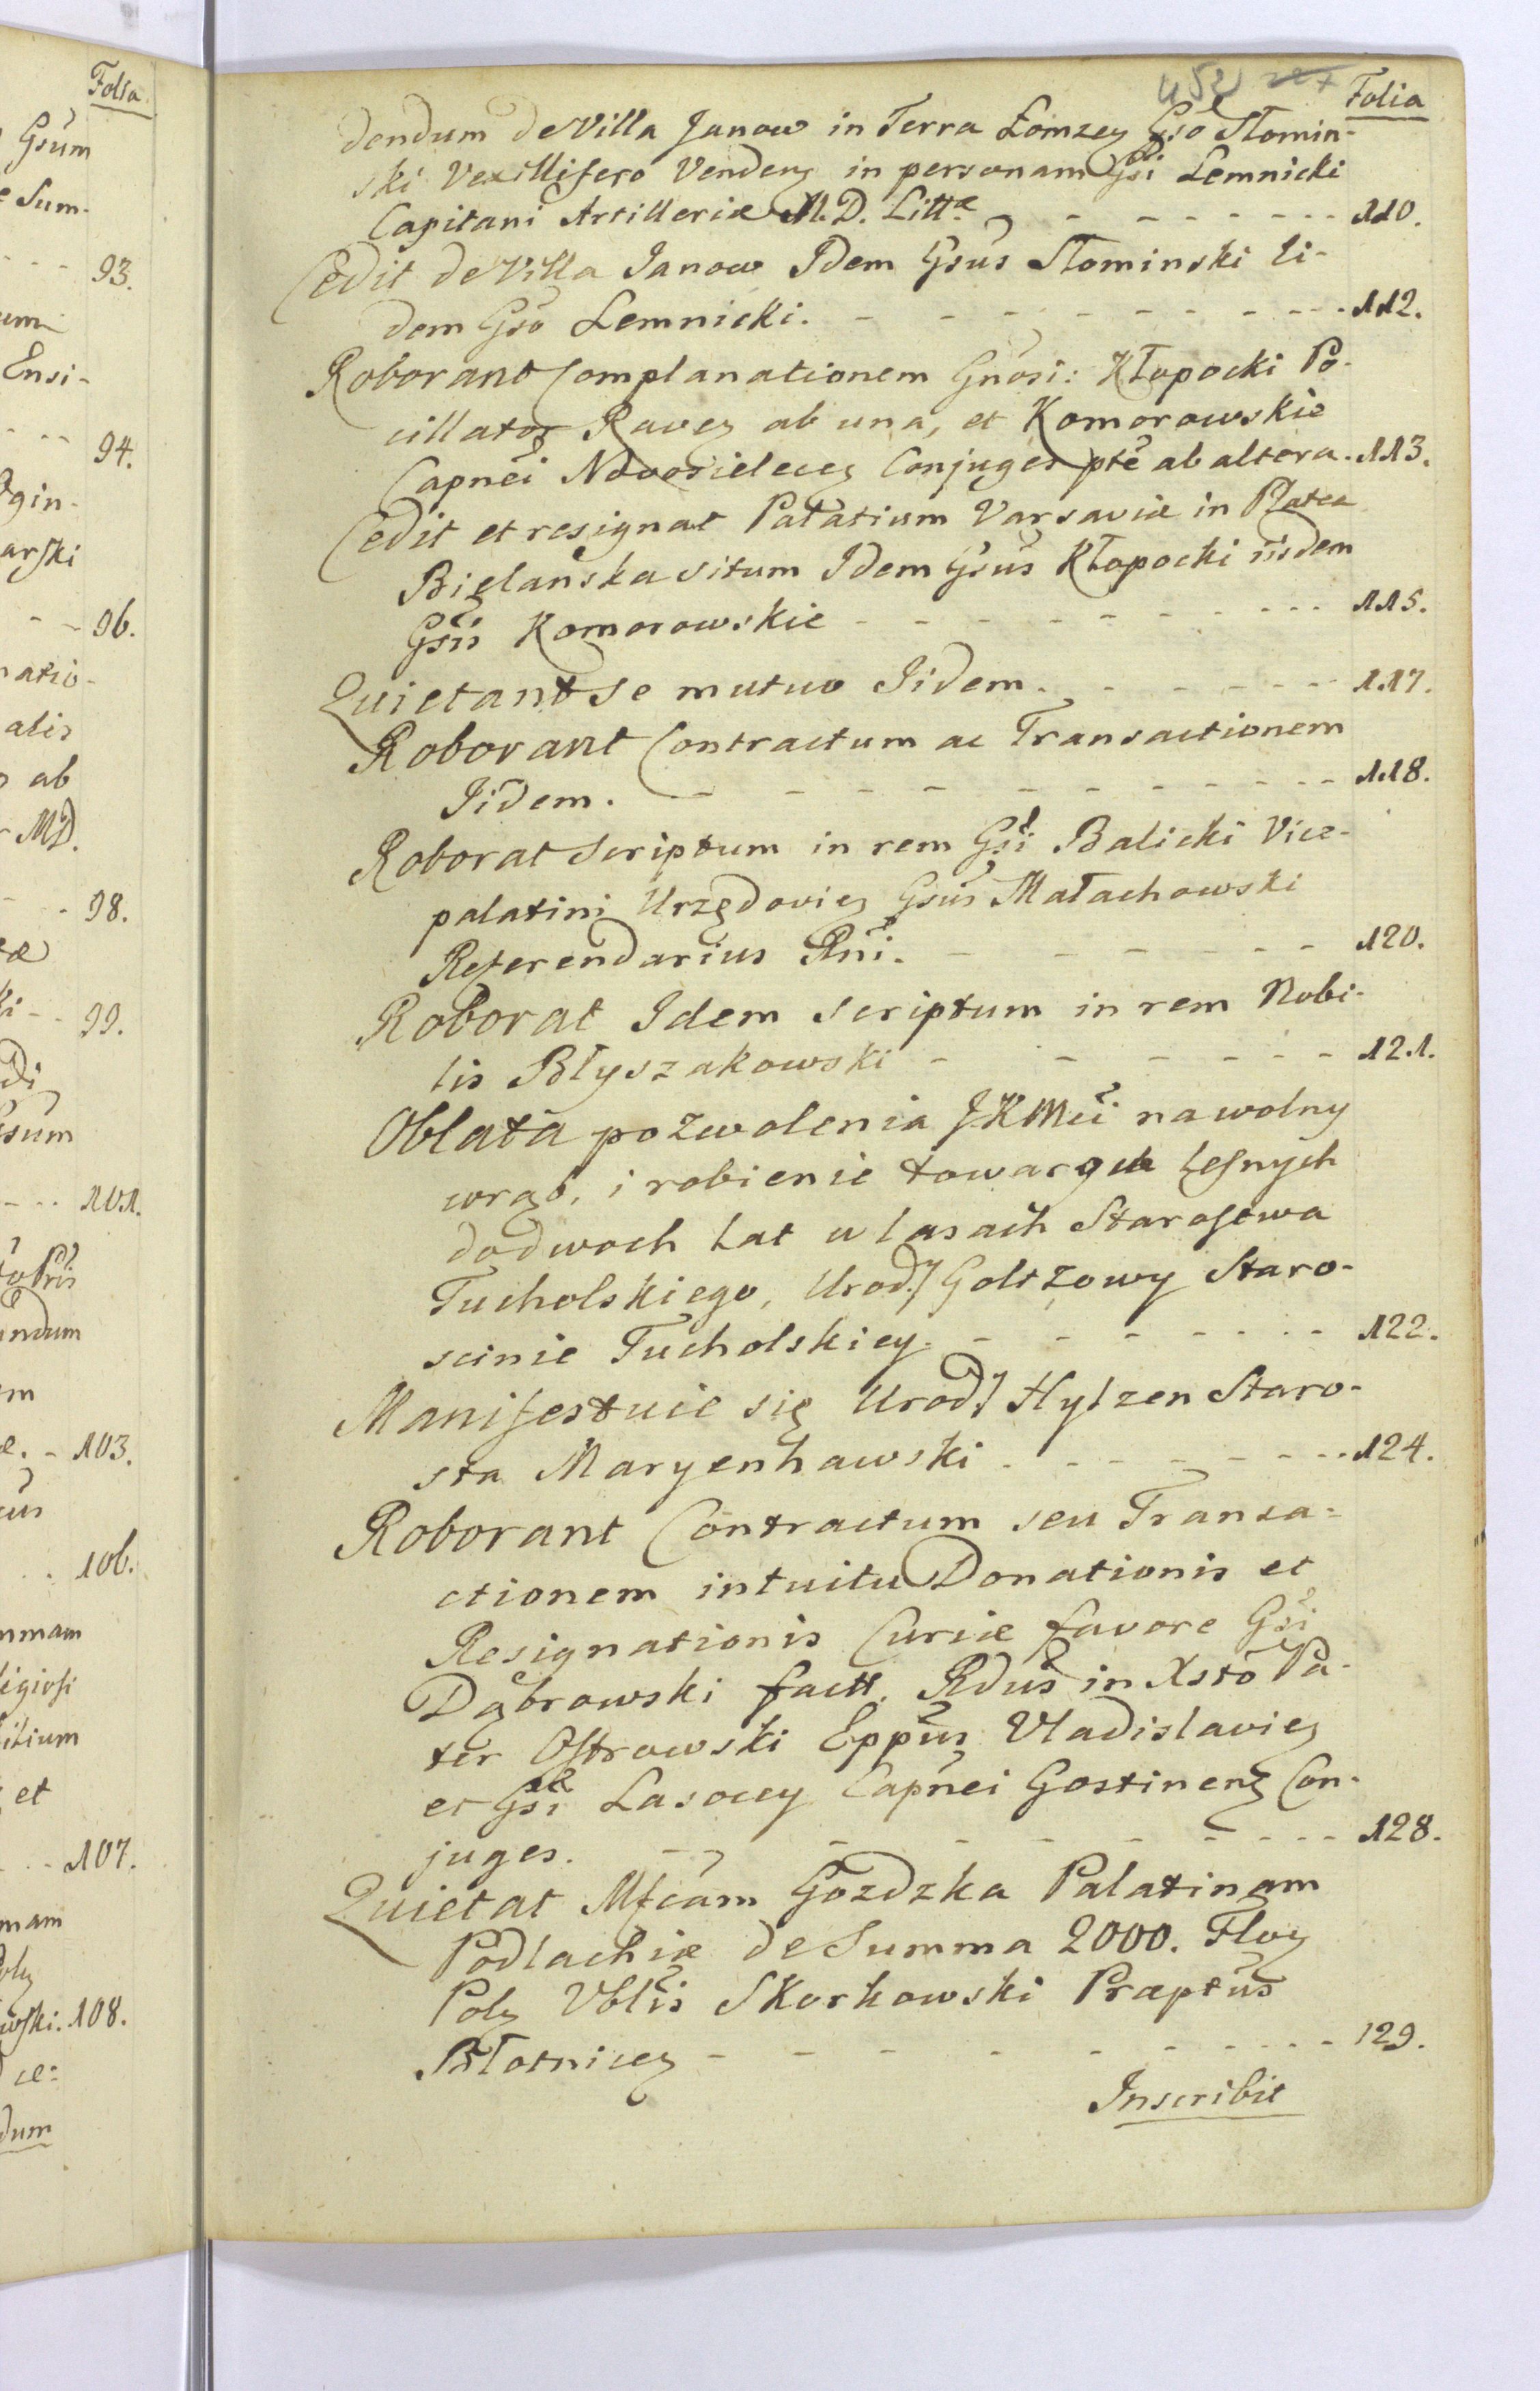 Folia
Gsum
Sum-
93.
Ensi-
94.
gin-
arski
96.
natio-
alis
ab
MD.
98.
99.
101.
ndum
103.
106.
mmam
ligiosi
et
107.
mam
wski. 108.
dum
452 Folia
dendum de Villa Janow in Terra Łomzeŋ Gso Słomin-
ski Vexillifero Vendeŋ in personam Gsi Lemnicki
Capitani Artilleriæ M. D. Littæ - - - - - - - 110.
Cedit de Villa Janow Idem Gsus Słominski Ii-
dem Gso Lemnicki. - - - - - - - - - 112.
Roborant Complanationem Gnosi: Kłopocki Po-
cillator Raveŋ ab una, et Komorowskie
Capnei Nowosieleceŋ Conjuges pte ab altera. 113.
Cedit et resignat Palatium Varsaviæ in Platea
Bielańska situm Idem Gsus Kłopocki iisdem
Gsis Komorowskie - - - - - - - - - 115.
Quietant se mutuo Iidem. - - - - - - - 117.
Roborant Contractum ac Transactionem
Iidem. - - - - - - - - - - - 118.
Roborat Scriptum in rem Gsi Balicki Vice-
palatini Urzędovieŋ Gsus Małachowski
Referendarius Rni. - - - - - - - 120.
Roborat Idem scriptum in rem Nobi-
lis Błyszakowski - - - - - - - 121.
Oblata pozwolenia JKMci na wolny
wrąb, i robienie towarow leśnych
do dwoch lat w lasach Starostwa
Tucholskiego, Urod. Goltzowy Staro-
scinie Tucholskiey. - - - - - - - - 122.
Manifestuie się Urod. Hylzen Staro-
sta Maryenhawski - - - - - - - 124.
Roborant Contractum seu Transa=
ctionem intuitu Donationis et
Resignationis Curiæ favore Gsi
Dąbrowski factt. Rdus in Xsto Pa-
ter Ostrowski Eppus Vladislavieŋ
et Gsi Lasoccy Capnei Gostineŋ Con-
juges. - - - - - - - - - 128.
Quietat Mfcam Gozdzka Palatinam
Podlachiæ de Summa 2000. Floŋ
Polŋ Vblis Skorkowski Præptus
Błotniceŋ - - - - - - - - - 129.
Inscribit